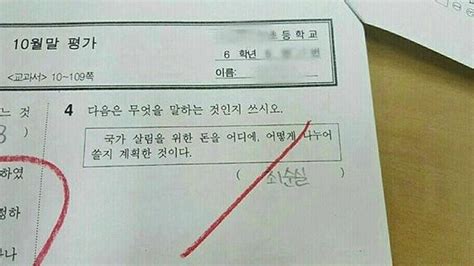 10월말 평가
초등학교
6 학년
<교과서> 10~109쪽
이름:
느 것
4 다음은 무엇을 말하는 것인지 쓰시오.
국가 살림을 위한 돈을 어디에, 어떻게 나누어
쓸지 계획한 것이다.
( 최순실 )
하였
하
나